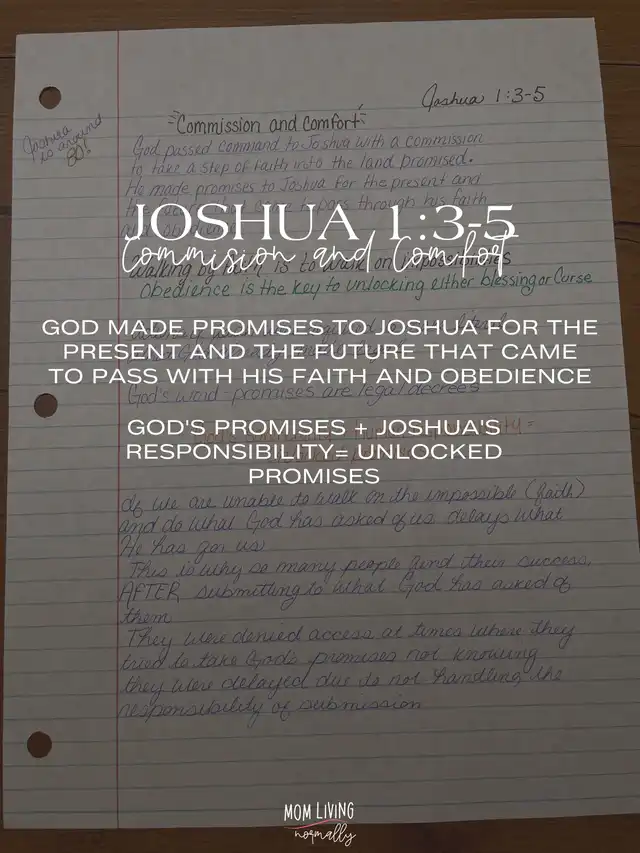 Joshua 1:3-5
Joshua
is around
80!
"Commission and Comfort"
God passed command to Joshua with a commission
to take a step of faith into the land promised.
He made promises to Joshua for the present and
through his faith
JOSHUA 1:3-5
Commision and Comfort
Walking by faith is to walk on impossibilities
Obedience is the key to unlocking either blessing or Curse
GOD MADE PROMISES TO JOSHUA FOR THE
PRESENT AND THE FUTURE THAT CAME
TO PASS WITH HIS FAITH AND OBEDIENCE
God's word-promises are legal decrees
GOD'S PROMISES + JOSHUA'S
RESPONSIBILITY= UNLOCKED
PROMISES
If we are unable to walk on the impossible (faith)
and do what God has asked of us delays what
He has for us
This is why so many people find their success
AFTER submitting to what God has asked of
them
They were denied access at times where they
tried to take God's promises not knowing
they were delayed due to not handling the
responsibility of submission
MOM LIVING
normally